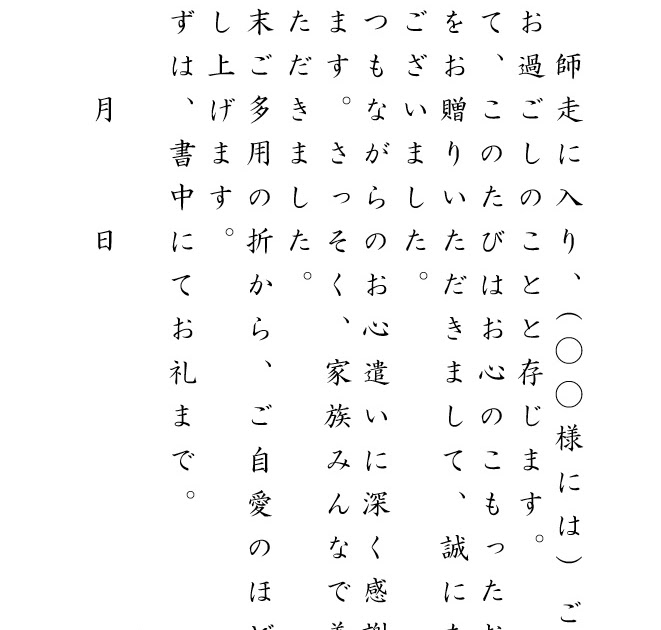 師走に入り、（〇〇様には）ご
お過ごしのことと存じます。
て、このたびはお心のこもったお
をお贈りいただきまして、誠にあ
ございました。
つもながらのお心遣いに深く感謝
ます。さっそく、家族みんなで
ただきました。
末ご多用の折から、ご自愛のほど
し上げます。
ずは、書中にてお礼まで。
月 日